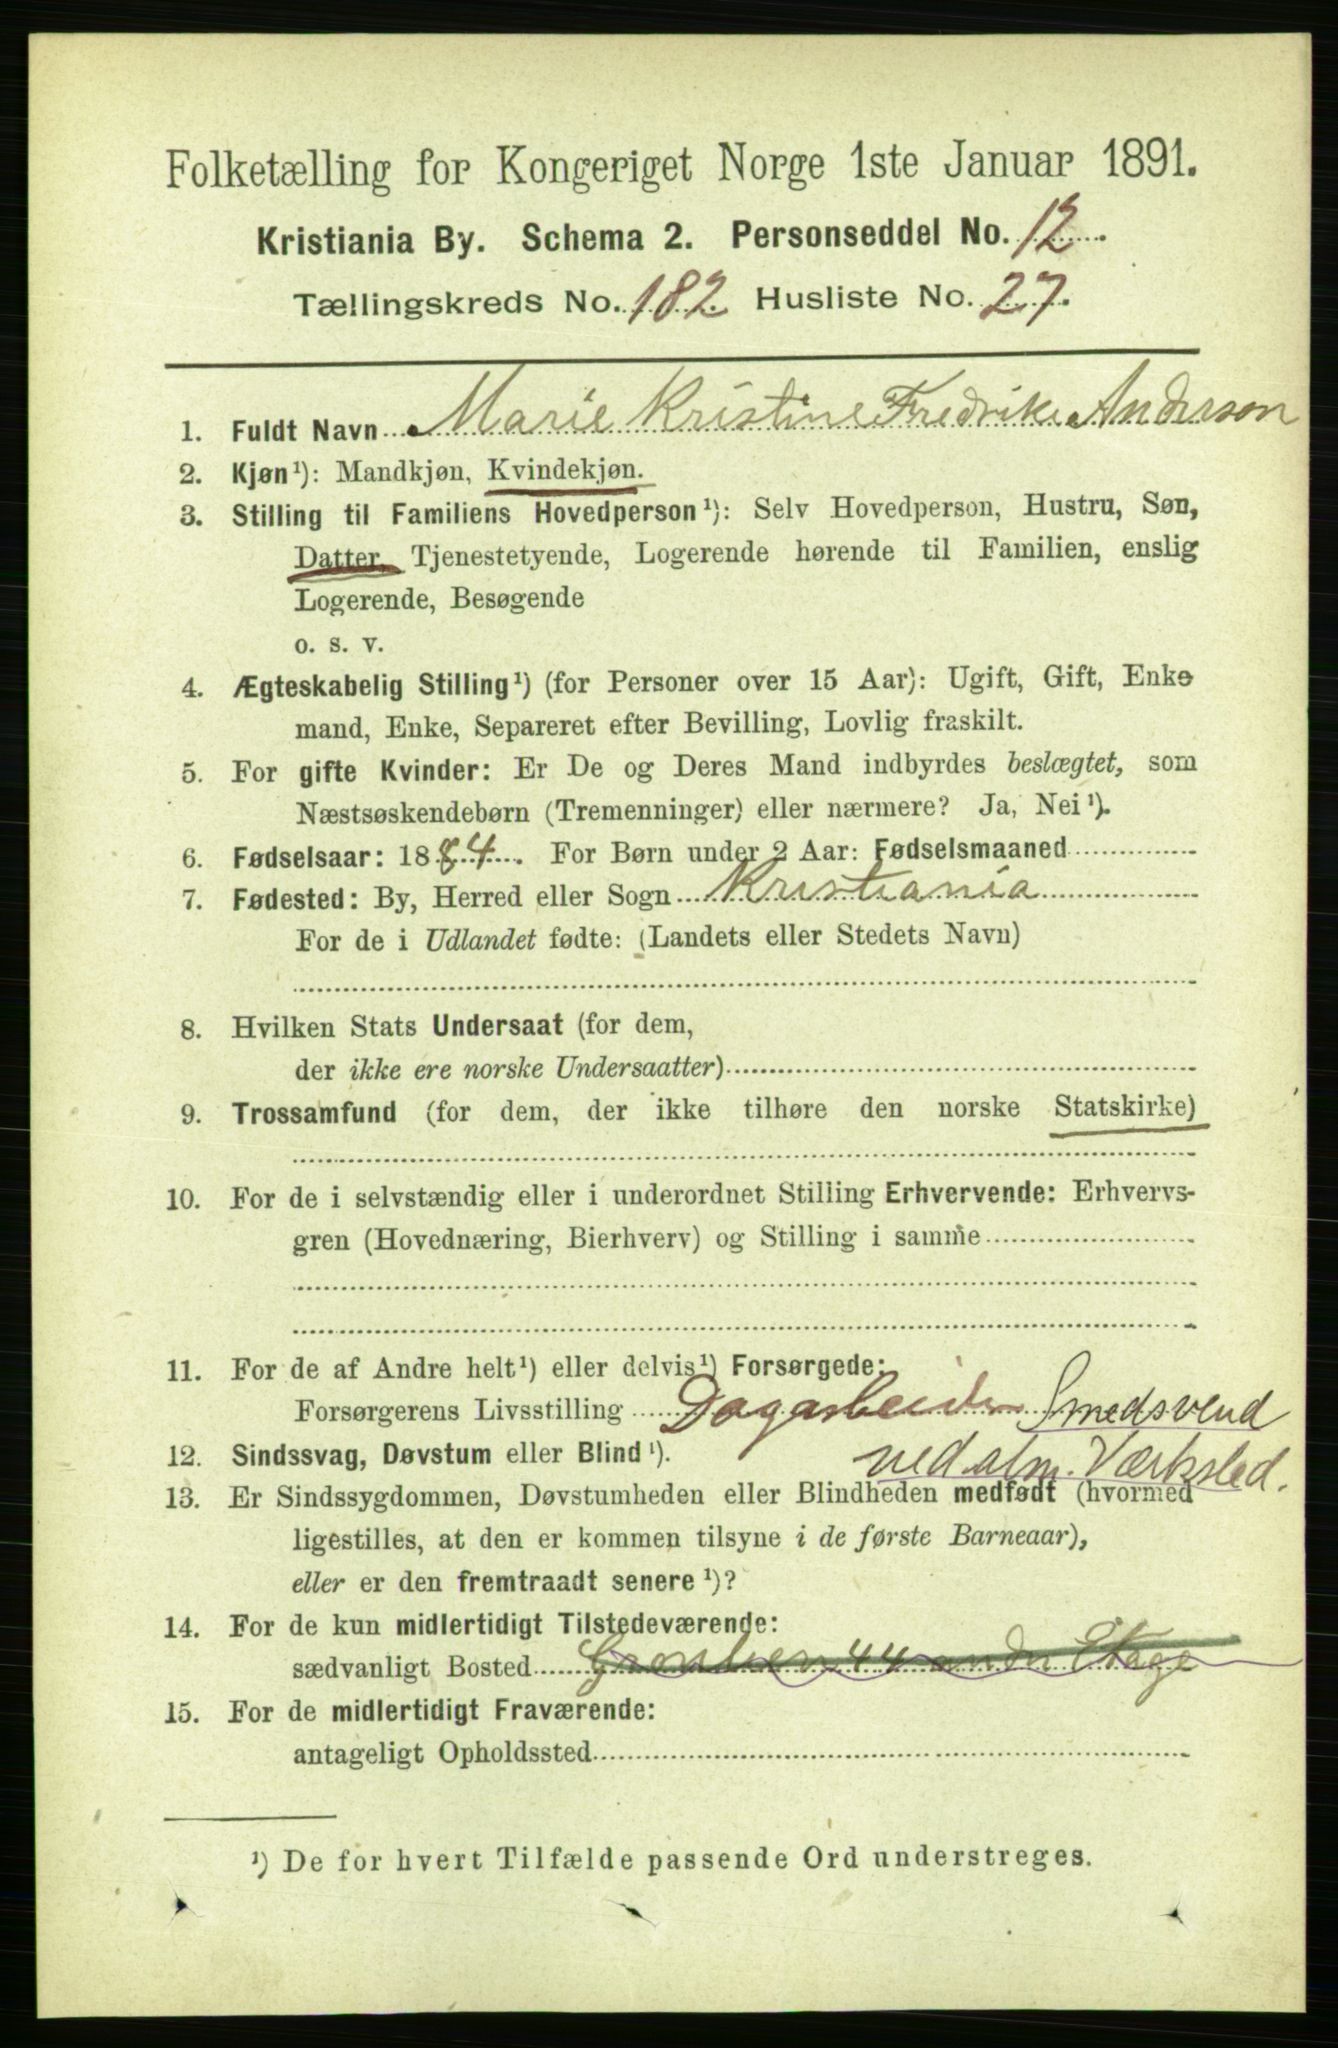 Folketælling for Kongeriget Norge 1ste Januar 1891.
Kristiania By. Schema 2. Personseddel No. 12.
Tællingskreds No. 182 Husliste No. 27.
1. Fuldt Navn Marie Kristine Fredrike Anderson
2. Kjøn¹): Mandkjøn, Kvindekjøn.
3. Stilling til Familiens Hovedperson¹): Selv Hovedperson, Hustru, Søn,
Datter, Tjenestetyende, Logerende hørende til Familien, enslig
Logerende, Besøgende
o. s. v.
4. Ægteskabelig Stilling¹) (for Personer over 15 Aar): Ugift, Gift, Enke
mand, Enke, Separeret efter Bevilling, Lovlig fraskilt.
5. For gifte Kvinder: Er De og Deres Mand indbyrdes beslægtet, som
Næstsøskendebørn (Tremenninger) eller nærmere? Ja, Nei¹).
6. Fødselsaar: 1884. For Børn under 2 Aar: Fødselsmaaned
7. Fødested: By, Herred eller Sogn Kristiania
For de i Udlandet fødte: (Landets eller Stedets Navn)
8. Hvilken Stats Undersaat (for dem,
der ikke ere norske Undersaatter)
9. Trossamfund (for dem, der ikke tilhøre den norske Statskirke)
10. For de i selvstændig eller i underordnet Stilling Erhvervende: Erhvervs-
gren (Hovednæring, Bierhverv) og Stilling i samme
11. For de af Andre helt¹) eller delvis¹) Forsørgede:
Forsørgerens Livsstilling Dagarbeider Smedsvend
12. Sindssvag, Døvstum eller Blind¹). ved alm. Værksted.
13. Er Sindssygdommen, Døvstumheden eller Blindheden medfødt (hvormed
ligestilles, at den er kommen tilsyne i de første Barneaar),
eller er den fremtraadt senere¹)?
14. For de kun midlertidigt Tilstedeværende:
sædvanligt Bosted 44 Etage
15. For de midlertidigt Fraværende:
antageligt Opholdssted
¹) De for hvert Tilfælde passende Ord understreges.